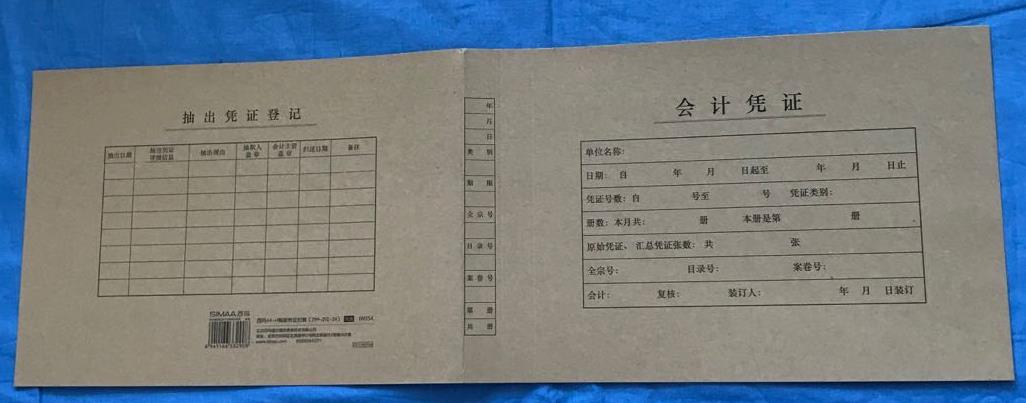 抽出凭证登记
抽出日期 抽出凭证 详细信息 抽出理由 抽取人 盖章 会计主管 盖章 归还日期 备注
SIMAA西玛
6 941146 592909
年
月
日
类别
期限
全宗号
目录号
案卷号
第 册
共 册
会计凭证
单位名称:
日期: 自 年 月 日起至 年 月 日止
凭证号数: 自 号至 号 凭证类别:
册数: 本月共: 册 本册是第 册
原始凭证、汇总凭证张数: 共 张
全宗号: 目录号: 案卷号:
会计: 复核: 装订人: 年 月 日装订